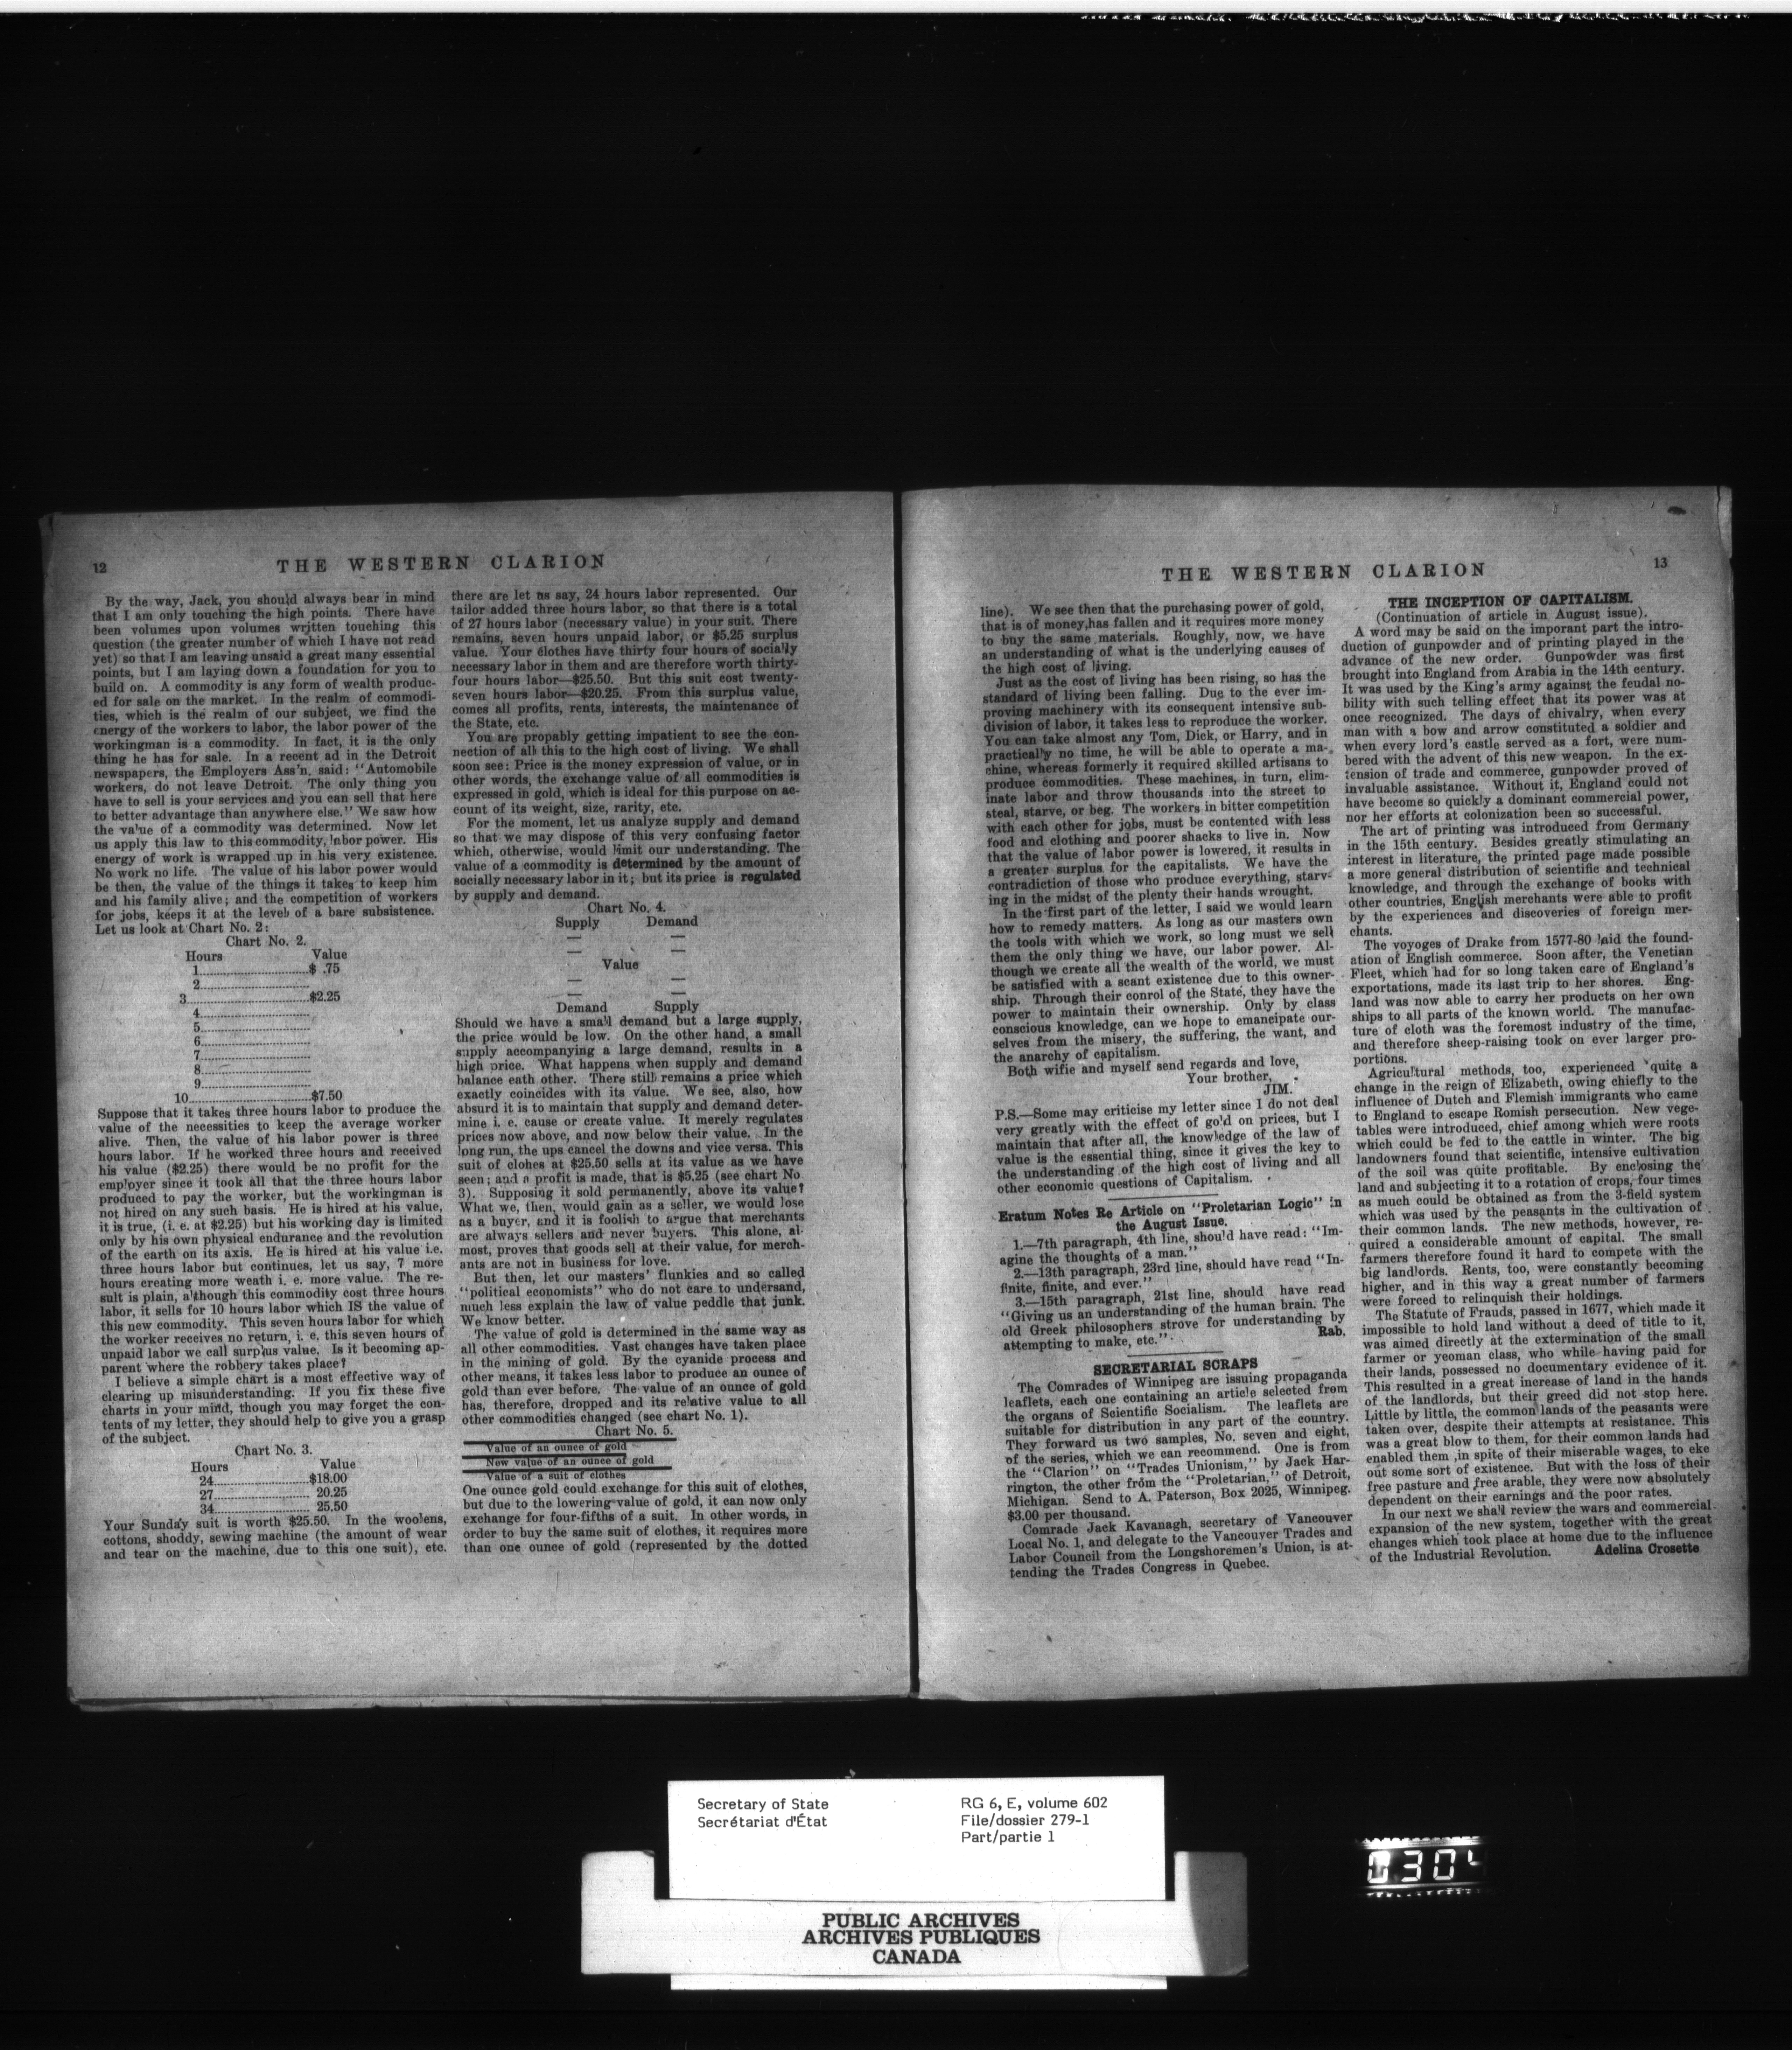 12
THE WESTERN CLARION
By the way, Jack, you should always bear in mind
that I am only touching the high points. There have
been volumes upon volumes written touching this
question (the greater number of which I have not read
yet) so that I am leaving unsaid a great many essential
points, but I am laying down a foundation for you to
build on. A commodity is any form of wealth produc-
ed for sale on the market. In the realm of commodi-
ties, which is the realm of our subject, we find the
energy of the workers to labor, the labor power of the
workingman is a commodity. In fact, it is the only
thing he has for sale. In a recent ad in the Detroit
newspapers, the Employers Ass'n, said: "Automobile
workers, do not leave Detroit. The only thing you
have to sell is your services and you can sell that here
to better advantage than anywhere else." We saw how
the value of a commodity was determined. Now let
us apply this law to this commodity, labor power. His
energy of work is wrapped up in his very existence.
No work no life. The value of his labor power would
be then, the value of the things it takes to keep him
and his family alive; and the competition of workers
for jobs, keeps it at the level of a bare subsistence.
Let us look at Chart No. 2:
Chart No. 2.
Hours Value
1..............................$ .75
2..............................
3..............................$2.25
4..............................
5..............................
6..............................
7..............................
8..............................
9..............................
10..............................$7.50
Suppose that it takes three hours labor to produce the
value of the necessities to keep the average worker
alive. Then, the value of his labor power is three
hours labor. If he worked three hours and received
his value ($2.25) there would be no profit for the
employer since it took all that the three hours labor
produced to pay the worker, but the workingman is
not hired on any such basis. He is hired at his value,
it is true, (i. e. at $2.25) but his working day is limited
only by his own physical endurance and the revolution
of the earth on its axis. He is hired at his value i.e.
three hours labor but continues, let us say, 7 more
hours creating more weath i. e. more value. The re-
sult is plain, although this commodity cost three hours
labor, it sells for 10 hours labor which IS the value of
this new commodity. This seven hours labor for which
the worker receives no return, i. e. this seven hours of
unpaid labor we call surplus value. Is it becoming ap-
parent where the robbery takes place?
I believe a simple chart is a most effective way of
clearing up misunderstanding. If you fix these five
charts in your mind, though you may forget the con-
tents of my letter, they should help to give you a grasp
of the subject.
Chart No. 3.
Hours Value
24..............................$18.00
27.............................. 20.25
34.............................. 25.50
Your Sunday suit is worth $25.50. In the woolens,
cottons, shoddy, sewing machine (the amount of wear
and tear on the machine, due to this one suit), etc.
there are let us say, 24 hours labor represented. Our
tailor added three hours labor, so that there is a total
of 27 hours labor (necessary value) in your suit. There
remains, seven hours unpaid labor, or $5.25 surplus
value. Your clothes have thirty four hours of socially
necessary labor in them and are therefore worth thirty-
four hours labor—$25.50. But this suit cost twenty-
seven hours labor—$20.25. From this surplus value,
comes all profits, rents, interests, the maintenance of
the State, etc.
You are propably getting impatient to see the con-
nection of all this to the high cost of living. We shall
soon see: Price is the money expression of value, or in
other words, the exchange value of all commodities is
expressed in gold, which is ideal for this purpose on ac-
count of its weight, size, rarity, etc.
For the moment, let us analyze supply and demand
so that we may dispose of this very confusing factor
which, otherwise, would limit our understanding. The
value of a commodity is determined by the amount of
socially necessary labor in it; but its price is regulated
by supply and demand.
Chart No. 4.
Supply Demand
— —
— —
Value
— —
— —
Demand Supply
Should we have a small demand but a large supply,
the price would be low. On the other hand, a small
supply accompanying a large demand, results in a
high price. What happens when supply and demand
balance eath other. There still remains a price which
exactly coincides with its value. We see, also, how
absurd it is to maintain that supply and demand deter-
mine i. e. cause or create value. It merely regulates
prices now above, and now below their value. In the
long run, the ups cancel the downs and vice versa. This
suit of clohes at $25.50 sells at its value as we have
seen; and a profit is made, that is $5.25 (see chart No
3). Supposing it sold permanently, above its value?
What we, then, would gain as a seller, we would lose
as a buyer, and it is foolish to argue that merchants
are always sellers and never buyers. This alone, al-
most, proves that goods sell at their value, for merch-
ants are not in business for love.
But then, let our masters' flunkies and so called
"political economists" who do not care to undersand,
much less explain the law of value peddle that junk.
We know better.
The value of gold is determined in the same way as
all other commodities. Vast changes have taken place
in the mining of gold. By the cyanide process and
other means, it takes less labor to produce an ounce of
gold than ever before. The value of an ounce of gold
has, therefore, dropped and its relative value to all
other commodities changed (see chart No. 1).
Chart No. 5.
Value of an ounce of gold
New value of an ounce of gold
Value of a suit of clothes
One ounce gold could exchange for this suit of clothes,
but due to the lowering value of gold, it can now only
exchange for four-fifths of a suit. In other words, in
order to buy the same suit of clothes, it requires more
than one ounce of gold (represented by the dotted
THE WESTERN CLARION
13
line). We see then that the purchasing power of gold,
that is of money,has fallen and it requires more money
to buy the same materials. Roughly, now, we have
an understanding of what is the underlying causes of
the high cost of living.
Just as the cost of living has been rising, so has the
standard of living been falling. Due to the ever im-
proving machinery with its consequent intensive sub-
division of labor, it takes less to reproduce the worker.
You can take almost any Tom, Dick, or Harry, and in
practically no time, he will be able to operate a ma-
chine, whereas formerly it required skilled artisans to
produce commodities. These machines, in turn, elim-
inate labor and throw thousands into the street to
steal, starve, or beg. The workers in bitter competition
with each other for jobs, must be contented with less
food and clothing and poorer shacks to live in. Now
that the value of labor power is lowered, it results in
a greater surplus for the capitalists. We have the
contradiction of those who produce everything, starv-
ing in the midst of the plenty their hands wrought.
In the first part of the letter, I said we would learn
how to remedy matters. As long as our masters own
the tools with which we work, so long must we sell
them the only thing we have, our labor power. Al-
though we create all the wealth of the world, we must
be satisfied with a scant existence due to this owner-
ship. Through their conrol of the State, they have the
power to maintain their ownership. Only by class
conscious knowledge, can we hope to emancipate our-
selves from the misery, the suffering, the want, and
the anarchy of capitalism.
Both wifie and myself send regards and love,
Your brother,
JIM.
P.S.—Some may criticise my letter since I do not deal
very greatly with the effect of gold on prices, but I
maintain that after all, the knowledge of the law of
value is the essential thing, since it gives the key to
the understanding of the high cost of living and all
other economic questions of Capitalism.
Eratum Notes Re Article on "Proletarian Logic" in
the August Issue.
1.—7th paragraph, 4th line, should have read: "Im-
agine the thoughts of a man."
2.—13th paragraph, 23rd line, should have read "In-
finite, finite, and ever."
3.—15th paragraph, 21st line, should have read
"Giving us an understanding of the human brain. The
old Greek philosophers strove for understanding by
attempting to make, etc." Rab.
SECRETARIAL SCRAPS
The Comrades of Winnipeg are issuing propaganda
leaflets, each one containing an article selected from
the organs of Scientific Socialism. The leaflets are
suitable for distribution in any part of the country.
They forward us two samples, No. seven and eight,
of the series, which we can recommend. One is from
the "Clarion" on "Trades Unionism," by Jack Har-
rington, the other from the "Proletarian," of Detroit,
Michigan. Send to A. Paterson, Box 2025, Winnipeg.
$3.00 per thousand.
Comrade Jack Kavanagh, secretary of Vancouver
Local No. 1, and delegate to the Vancouver Trades and
Labor Council from the Longshoremen's Union, is at-
tending the Trades Congress in Quebec.
THE INCEPTION OF CAPITALISM.
(Continuation of article in August issue).
A word may be said on the imporant part the intro-
duction of gunpowder and of printing played in the
advance of the new order. Gunpowder was first
brought into England from Arabia in the 14th century.
It was used by the King's army against the feudal no-
bility with such telling effect that its power was at
once recognized. The days of chivalry, when every
man with a bow and arrow constituted a soldier and
when every lord's castle served as a fort, were num-
bered with the advent of this new weapon. In the ex-
tension of trade and commerce, gunpowder proved of
invaluable assistance. Without it, England could not
have become so quickly a dominant commercial power,
nor her efforts at colonization been so successful.
The art of printing was introduced from Germany
in the 15th century. Besides greatly stimulating an
interest in literature, the printed page made possible
a more general distribution of scientific and technical
knowledge, and through the exchange of books with
other countries, English merchants were able to profit
by the experiences and discoveries of foreign mer-
chants.
The voyoges of Drake from 1577-80 laid the found-
ation of English commerce. Soon after, the Venetian
Fleet, which had for so long taken care of England's
exportations, made its last trip to her shores. Eng-
land was now able to carry her products on her own
ships to all parts of the known world. The manufac-
ture of cloth was the foremost industry of the time,
and therefore sheep-raising took on ever larger pro-
portions.
Agricultural methods, too, experienced quite a
change in the reign of Elizabeth, owing chiefly to the
influence of Dutch and Flemish immigrants who came
to England to escape Romish persecution. New vege-
tables were introduced, chief among which were roots
which could be fed to the cattle in winter. The big
landowners found that scientific, intensive cultivation
of the soil was quite profitable. By enclosing the
land and subjecting it to a rotation of crops, four times
as much could be obtained as from the 3-field system
which was used by the peasants in the cultivation of
their common lands. The new methods, however, re-
quired a considerable amount of capital. The small
farmers therefore found it hard to compete with the
big landlords. Rents, too, were constantly becoming
higher, and in this way a great number of farmers
were forced to relinquish their holdings.
The Statute of Frauds, passed in 1677, which made it
impossible to hold land without a deed of title to it,
was aimed directly at the extermination of the small
farmer or yeoman class, who while having paid for
their lands, possessed no documentary evidence of it.
This resulted in a great increase of land in the hands
of the landlords, but their greed did not stop here.
Little by little, the common lands of the peasants were
taken over, despite their attempts at resistance. This
was a great blow to them, for their common lands had
enabled them ,in spite of their miserable wages, to eke
out some sort of existence. But with the loss of their
free pasture and free arable, they were now absolutely
dependent on their earnings and the poor rates.
In our next we shall review the wars and commercial
expansion of the new system, together with the great
changes which took place at home due to the influence
of the Industrial Revolution. Adelina Crosette
Secretary of State
Secrétariat d'État
RG 6, E, volume 602
File/dossier 279-1
Part/partie 1
PUBLIC ARCHIVES
ARCHIVES PUBLIQUES
CANADA